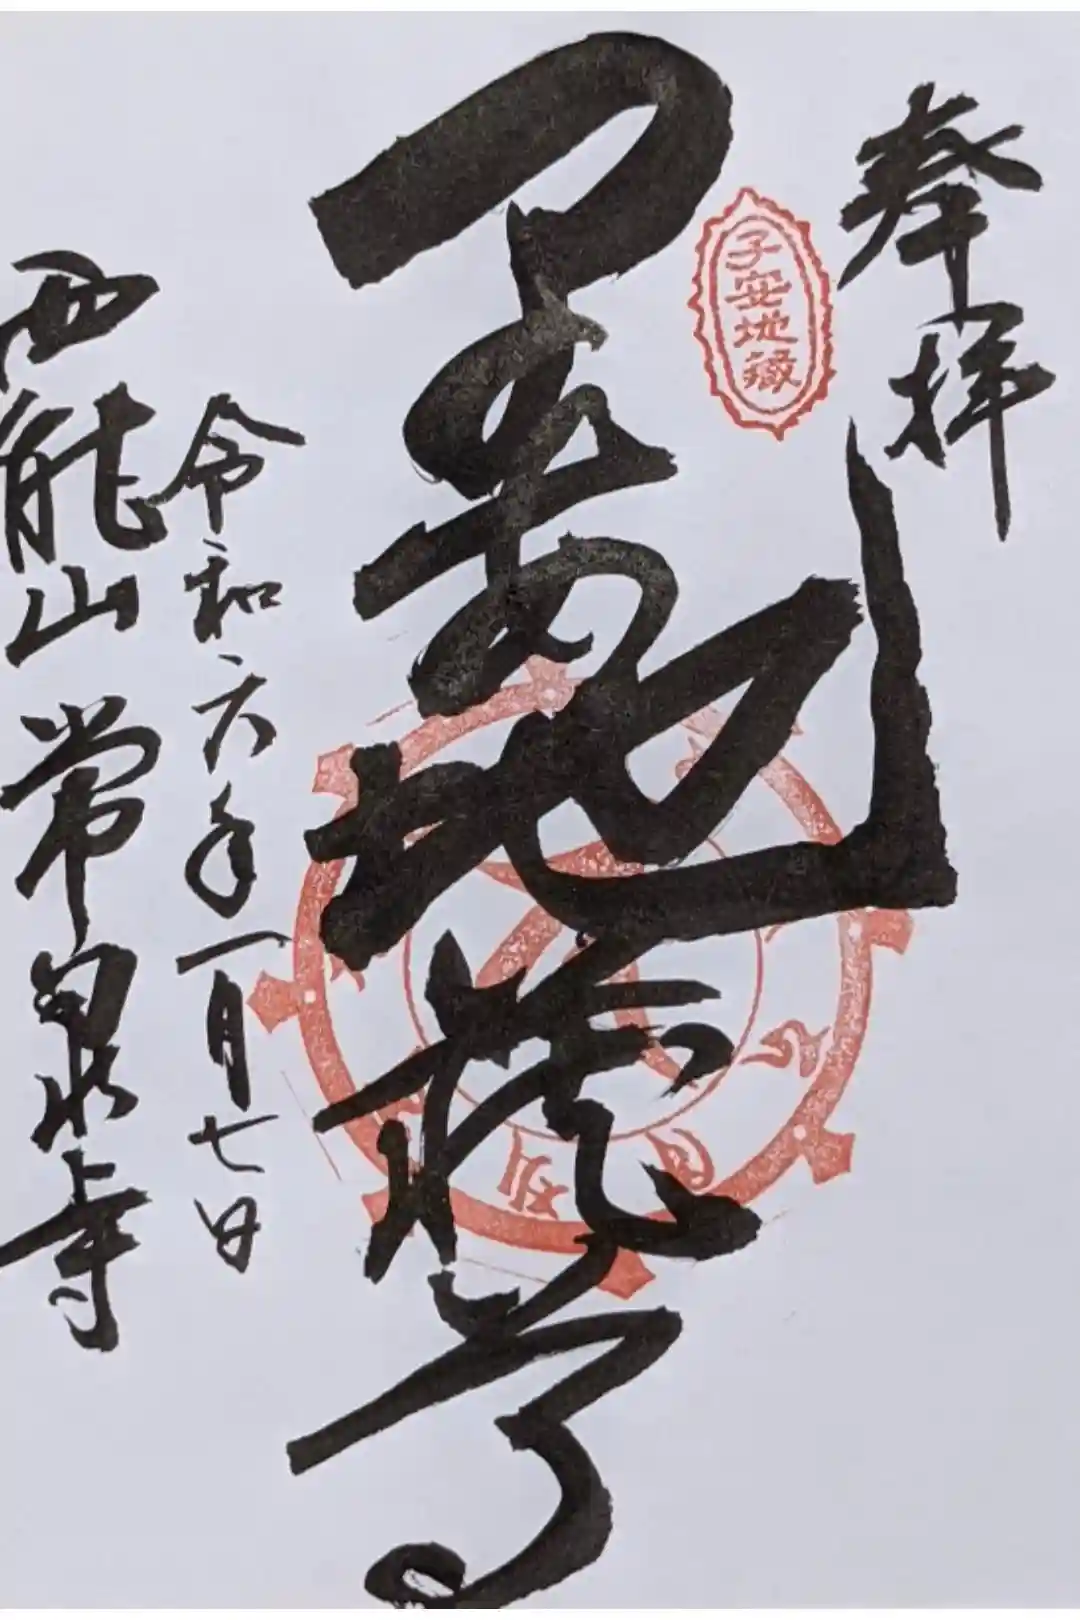 奉拝
子安地蔵
子安地蔵尊
令和六年一月七日
西能山常泉寺